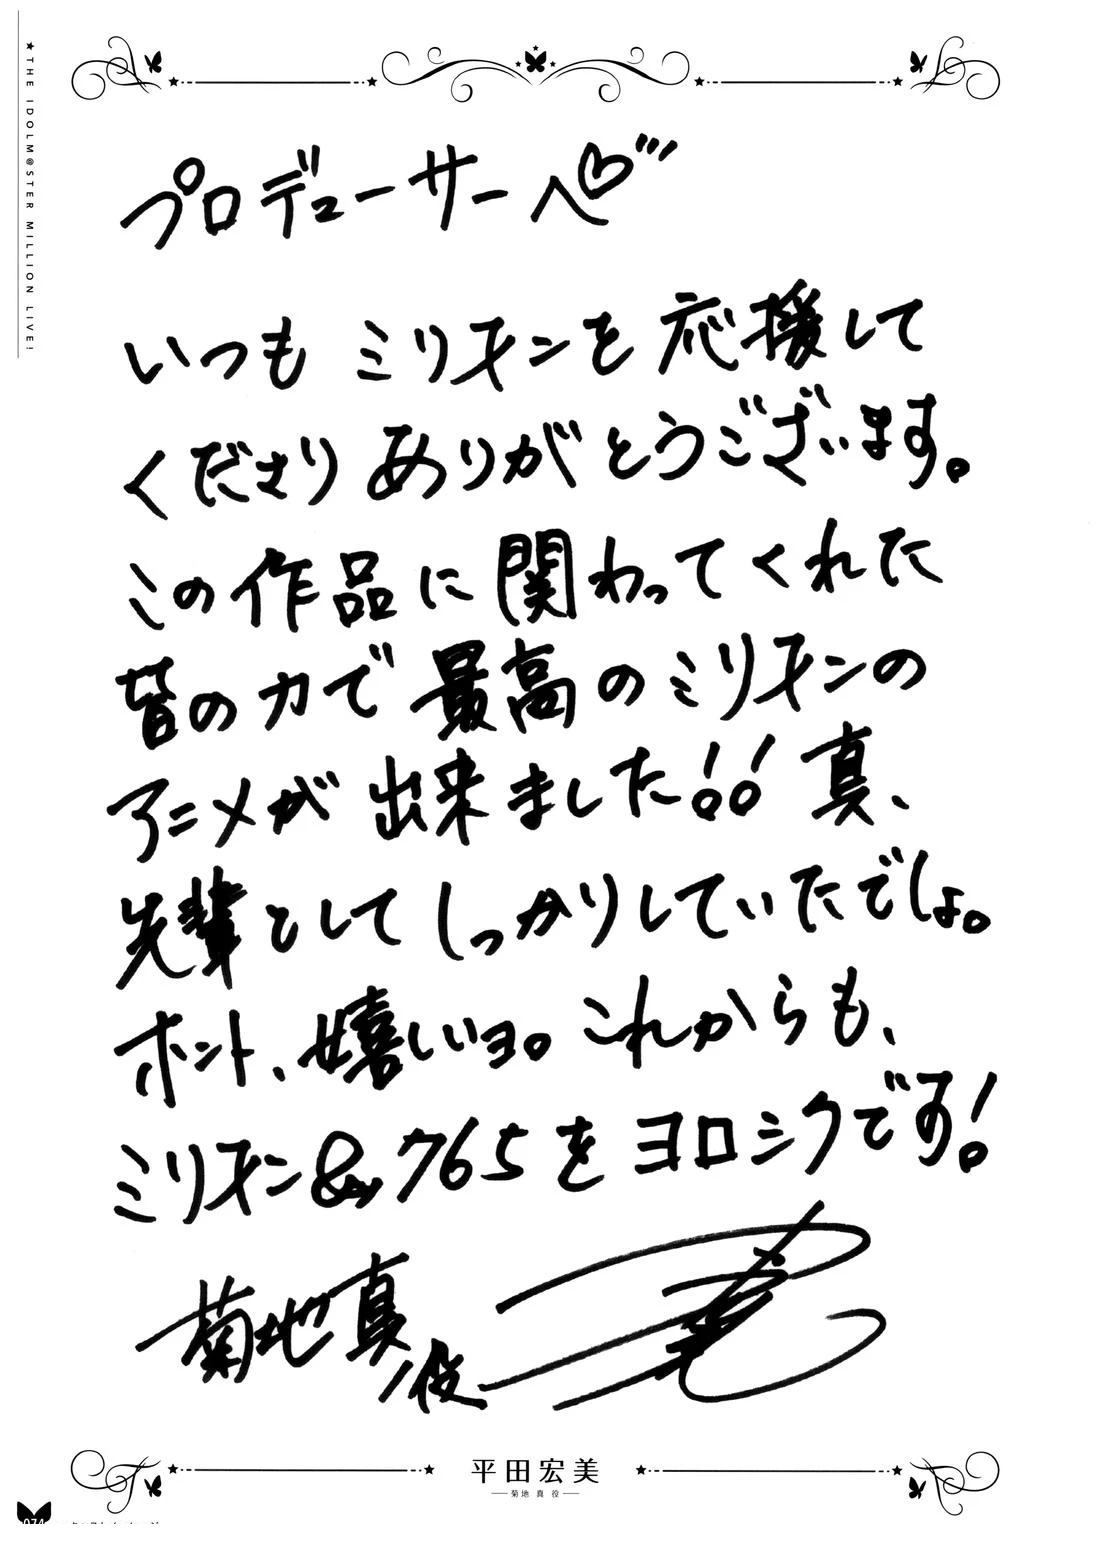 ★THE IDOLM@STER MILLION LIVE!
プロデューサーへ♡
いつもミリオンを応援して
くださりありがとうございます。
この作品に関わってくれた
皆の力で最高のミリオンの
アニメが出来ました!! 真、
先輩としてしっかりしていたでしょ。
ホント、嬉しいヨ。これからも、
ミリオン&765をヨロシクです!
菊地真役
平田宏美
菊地 真 役
074